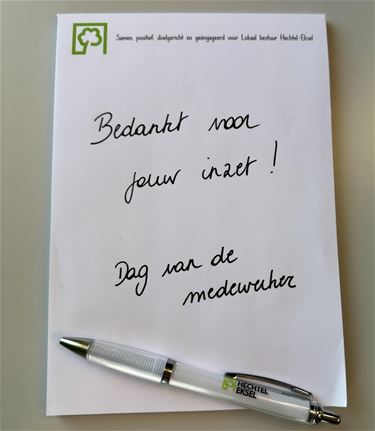 Samen, positief, doelgericht en geëngageerd voor Lokaal bestuur Hechtel-Eksel
Bedankt voor
jouw inzet !
Dag van de
medewerker
HECHTEL
EKSEL